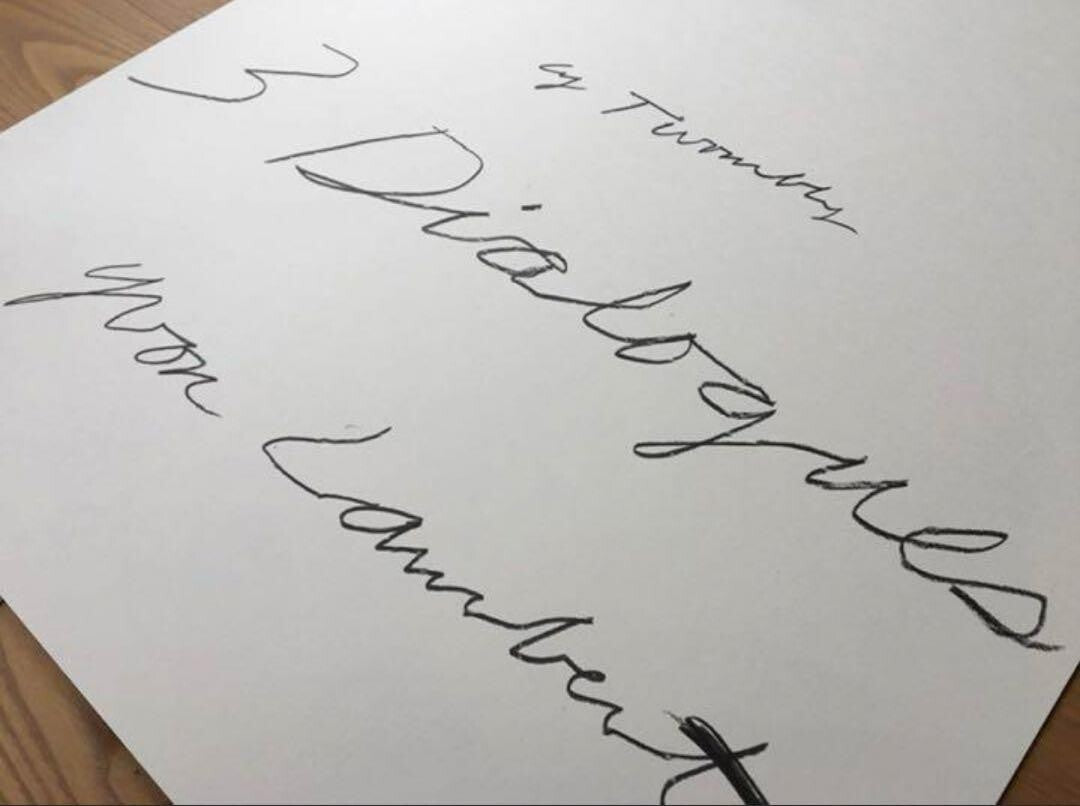 Cy Twombly
3 Dialogues
yvon Lambert